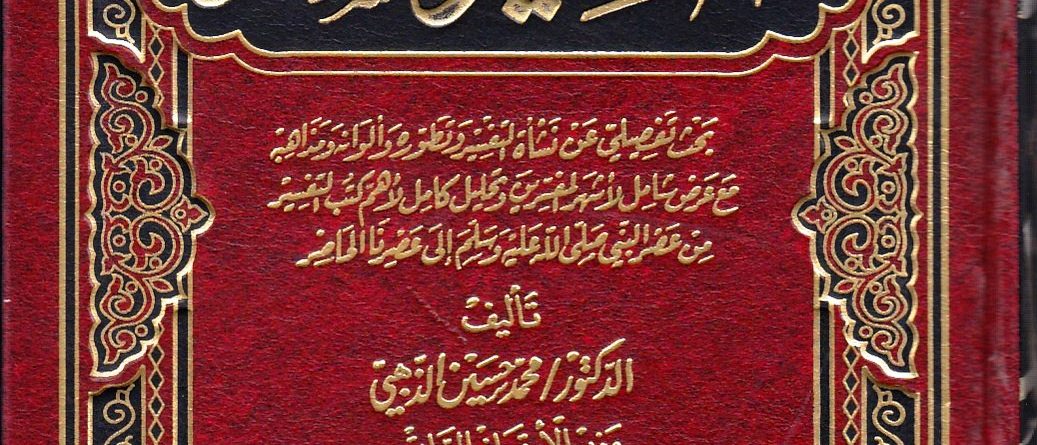 بحث تفصيلي عن نشأة التفسير وتطوره وألوانه ومذاهبه
مع عرض شامل لأشهر المفسرين وتحليل كامل لأهم كتب التفسير
من عصر النبي صلى الله عليه وسلم إلى عصرنا الحاضر
تأليف
الدكتور/ محمد حسين الذهبي